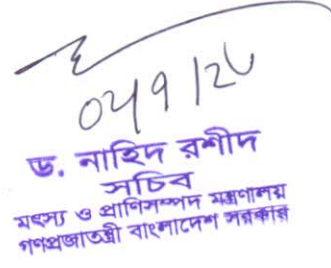 ড. নাহিদ রশীদ
সচিব
মৎস্য ও প্রাণিসম্পদ মন্ত্রণালয়
গণপ্রজাতন্ত্রী বাংলাদেশ সরকার